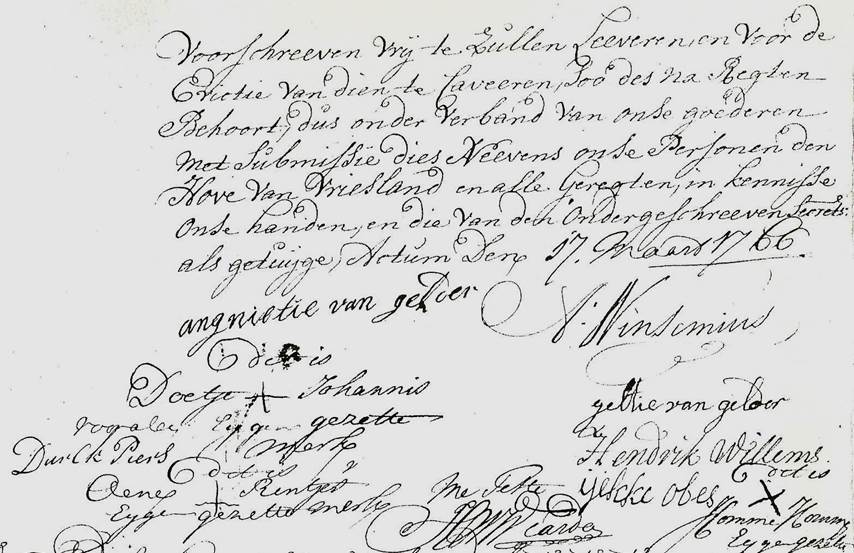 Voorschreeven vrij te zullen Leeveren, en voor de
Evictie van dien te Caveeren, soo des na Regten
Behoort, dus onder verband van onse goederen
met submissie dies Neevens onse Personen den
Hove van Vriesland en alle Geregten, in kennisse
onse handen, en die van den Ondergeschreeven Secrets:
als getuijge, Actum Den 17. Maart 1766
angnietie van gelder
N: Winsemius
dit is
Doetje X Johannis
Eygen gezette
merk
geltie van gelder
Durck Piers
Hendrik Willems
dit is
dit is
Oene + Rintjes
Eyge gezette merk
Me Teste
Wiarda
yekke obes X
Homme Homme
Eyge gezette